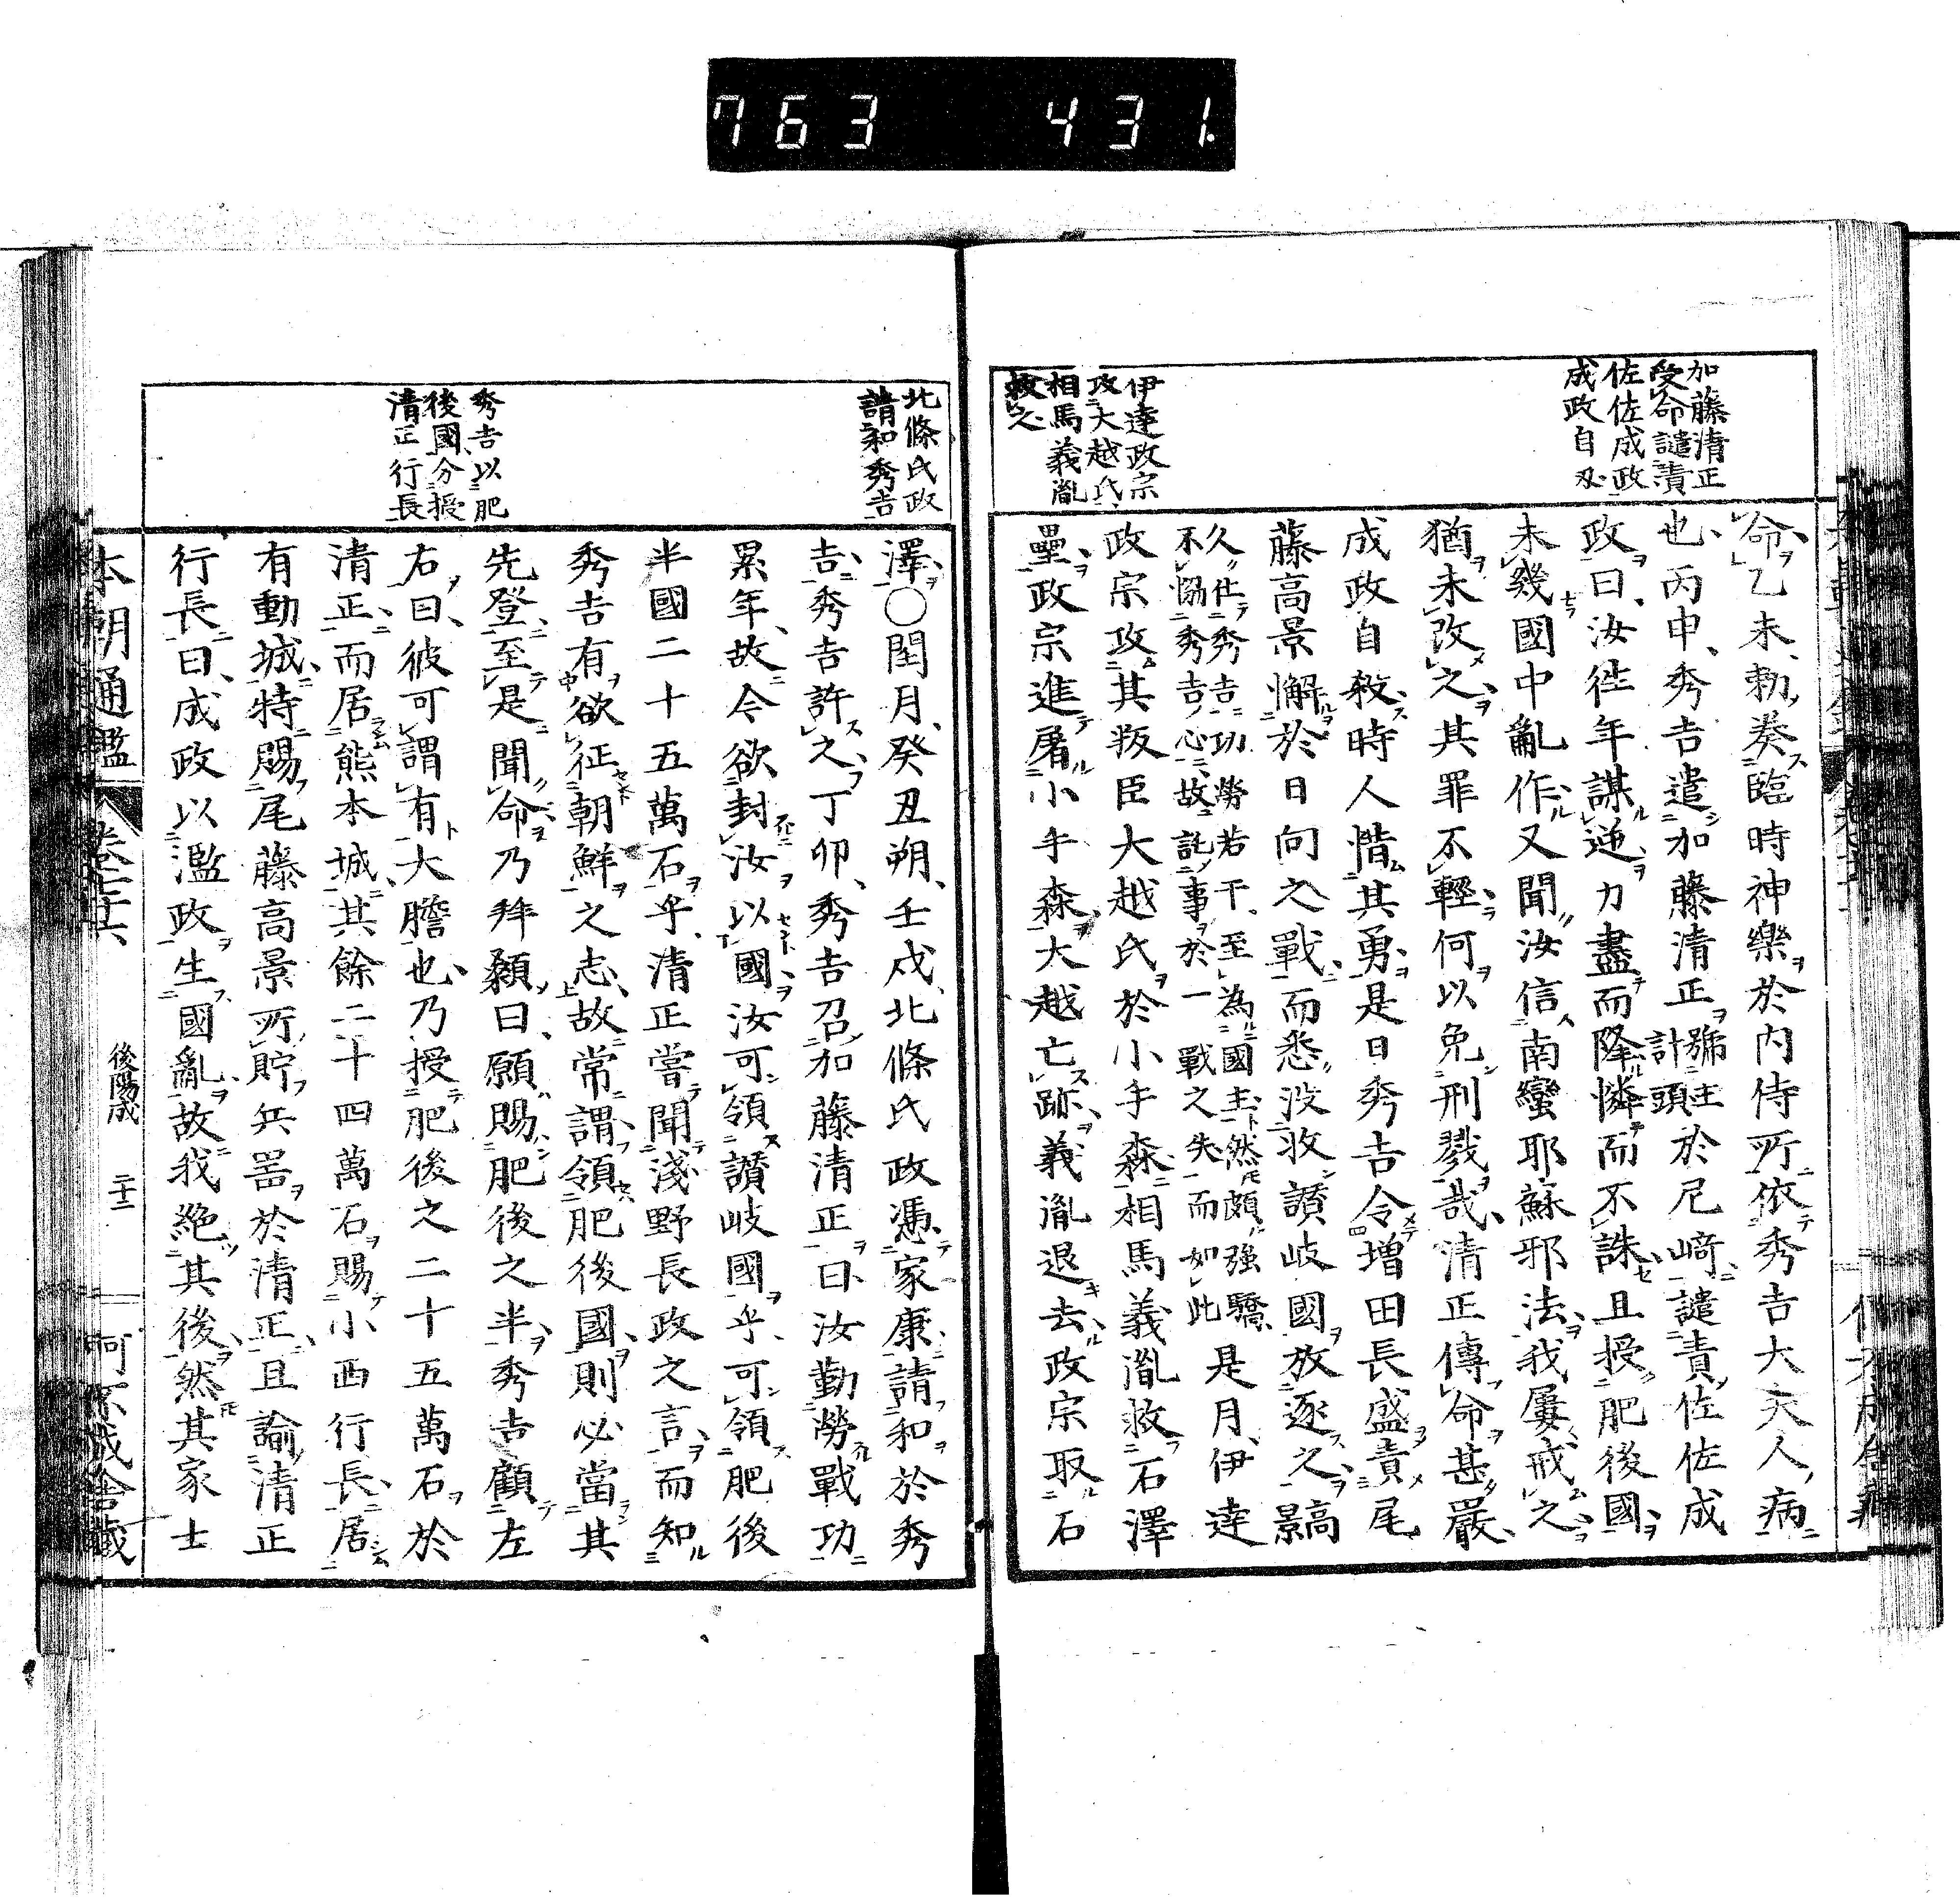 763 431
加藤清正
受命譴責
佐佐成政
成政自刄
伊達政宗
攻大越氏
相馬義胤
救之
命乙未勅奏臨時神樂於内侍所依秀吉大夫人病
也丙申秀吉遣加藤清正號主計頭於尼﨑譴責佐佐成
政曰汝徃年謀逆力盡而降憐而不誅且授肥後國
未幾國中亂作又聞汝信南蠻耶蘇邪法我屢戒之
猶未改之其罪不輕何以免刑戮哉清正傳命甚嚴
成政自殺時人惜其勇是日秀吉令增田長盛責尾
藤高景懈於日向之戰而悉没收讃岐國放逐之高景
久仕秀吉功勞若干至為國主然頗強驕
不恊秀吉心故託事於一戰之失而如此
是月伊達
政宗攻其叛臣大越氏於小手森相馬義胤救石澤
壘政宗進屠小手森大越亡跡義胤退去政宗取石
北條氏政
請和秀吉
秀吉以肥
後國分授
清正行長
澤○閏月癸丑朔壬戌北條氏政憑家康請和於秀
吉秀吉許之丁卯秀吉召加藤清正曰汝勤勞戰功
累年故今欲封汝以國汝可領讃岐國乎可領肥後
半國二十五萬石乎清正嘗聞淺野長政之言而知
秀吉有欲征朝鮮之志故常謂領肥後國則必當其
先登至是聞命乃拜顙曰願賜肥後之半秀吉顧左
右曰彼可謂有大膽也乃授肥後之二十五萬石於
清正而居熊本城其餘二十四萬石賜小西行長居
有動城特賜尾藤高景所貯兵噐於清正且諭清正
行長曰成政以濫政生國亂故我絶其後然其家士
本朝通鑑 後陽成 二十二